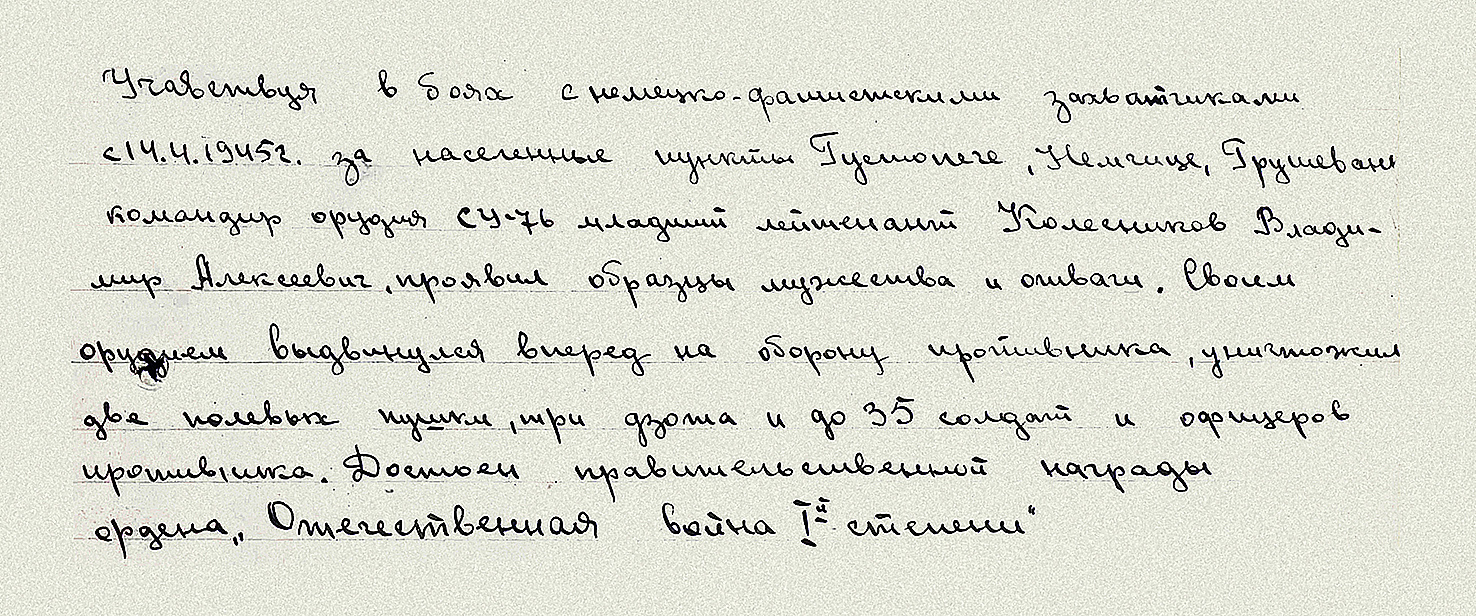 Учавствуя в боях с немецко-фашистскими захватчиками
с 14.4.1945г. за населенные пункты Густопече, Немчице, Грушеваны
командир орудия СУ-76 младший лейтенант Колесников Влади-
мир Алексеевич, проявил образцы мужества и отваги. Своим
орудием выдвинулся вперед на оборону противника, уничтожил
две полевых пушки, три дзота и до 35 солдат и офицеров
противника. Достоен правительственной награды
ордена „Отечественная война I й степени"